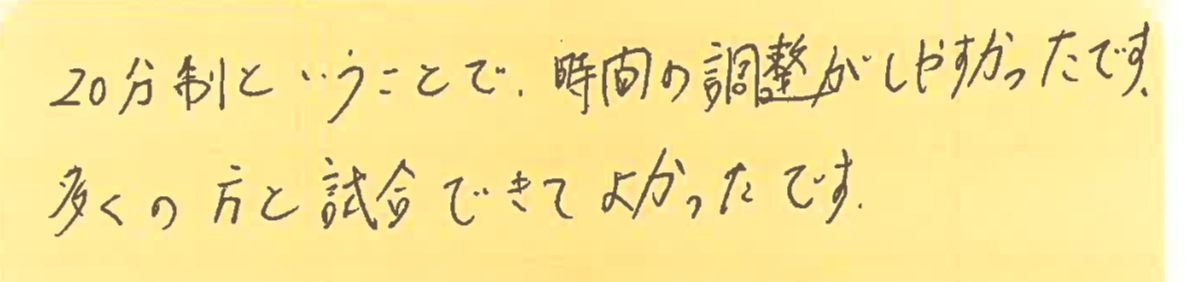 20分制ということで、時間の調整がしやすかったです。
多くの方と試合できてよかったです。